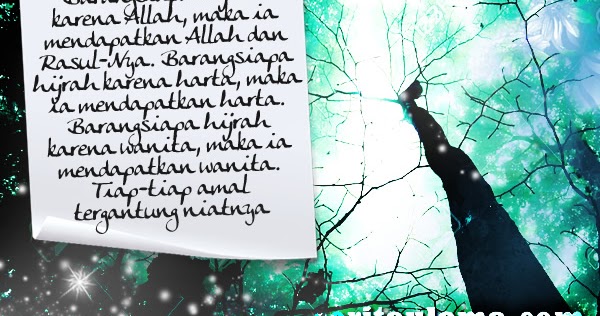 karena Allah, maka ia
mendapatkan Allah dan
Rasul-Nya. Barangsiapa
hijrah karena harta, maka
ia mendapatkan harta.
Barangsiapa hijrah
karena wanita, maka ia
mendapatkan wanita.
Tiap-tiap amal
tergantung niatnya